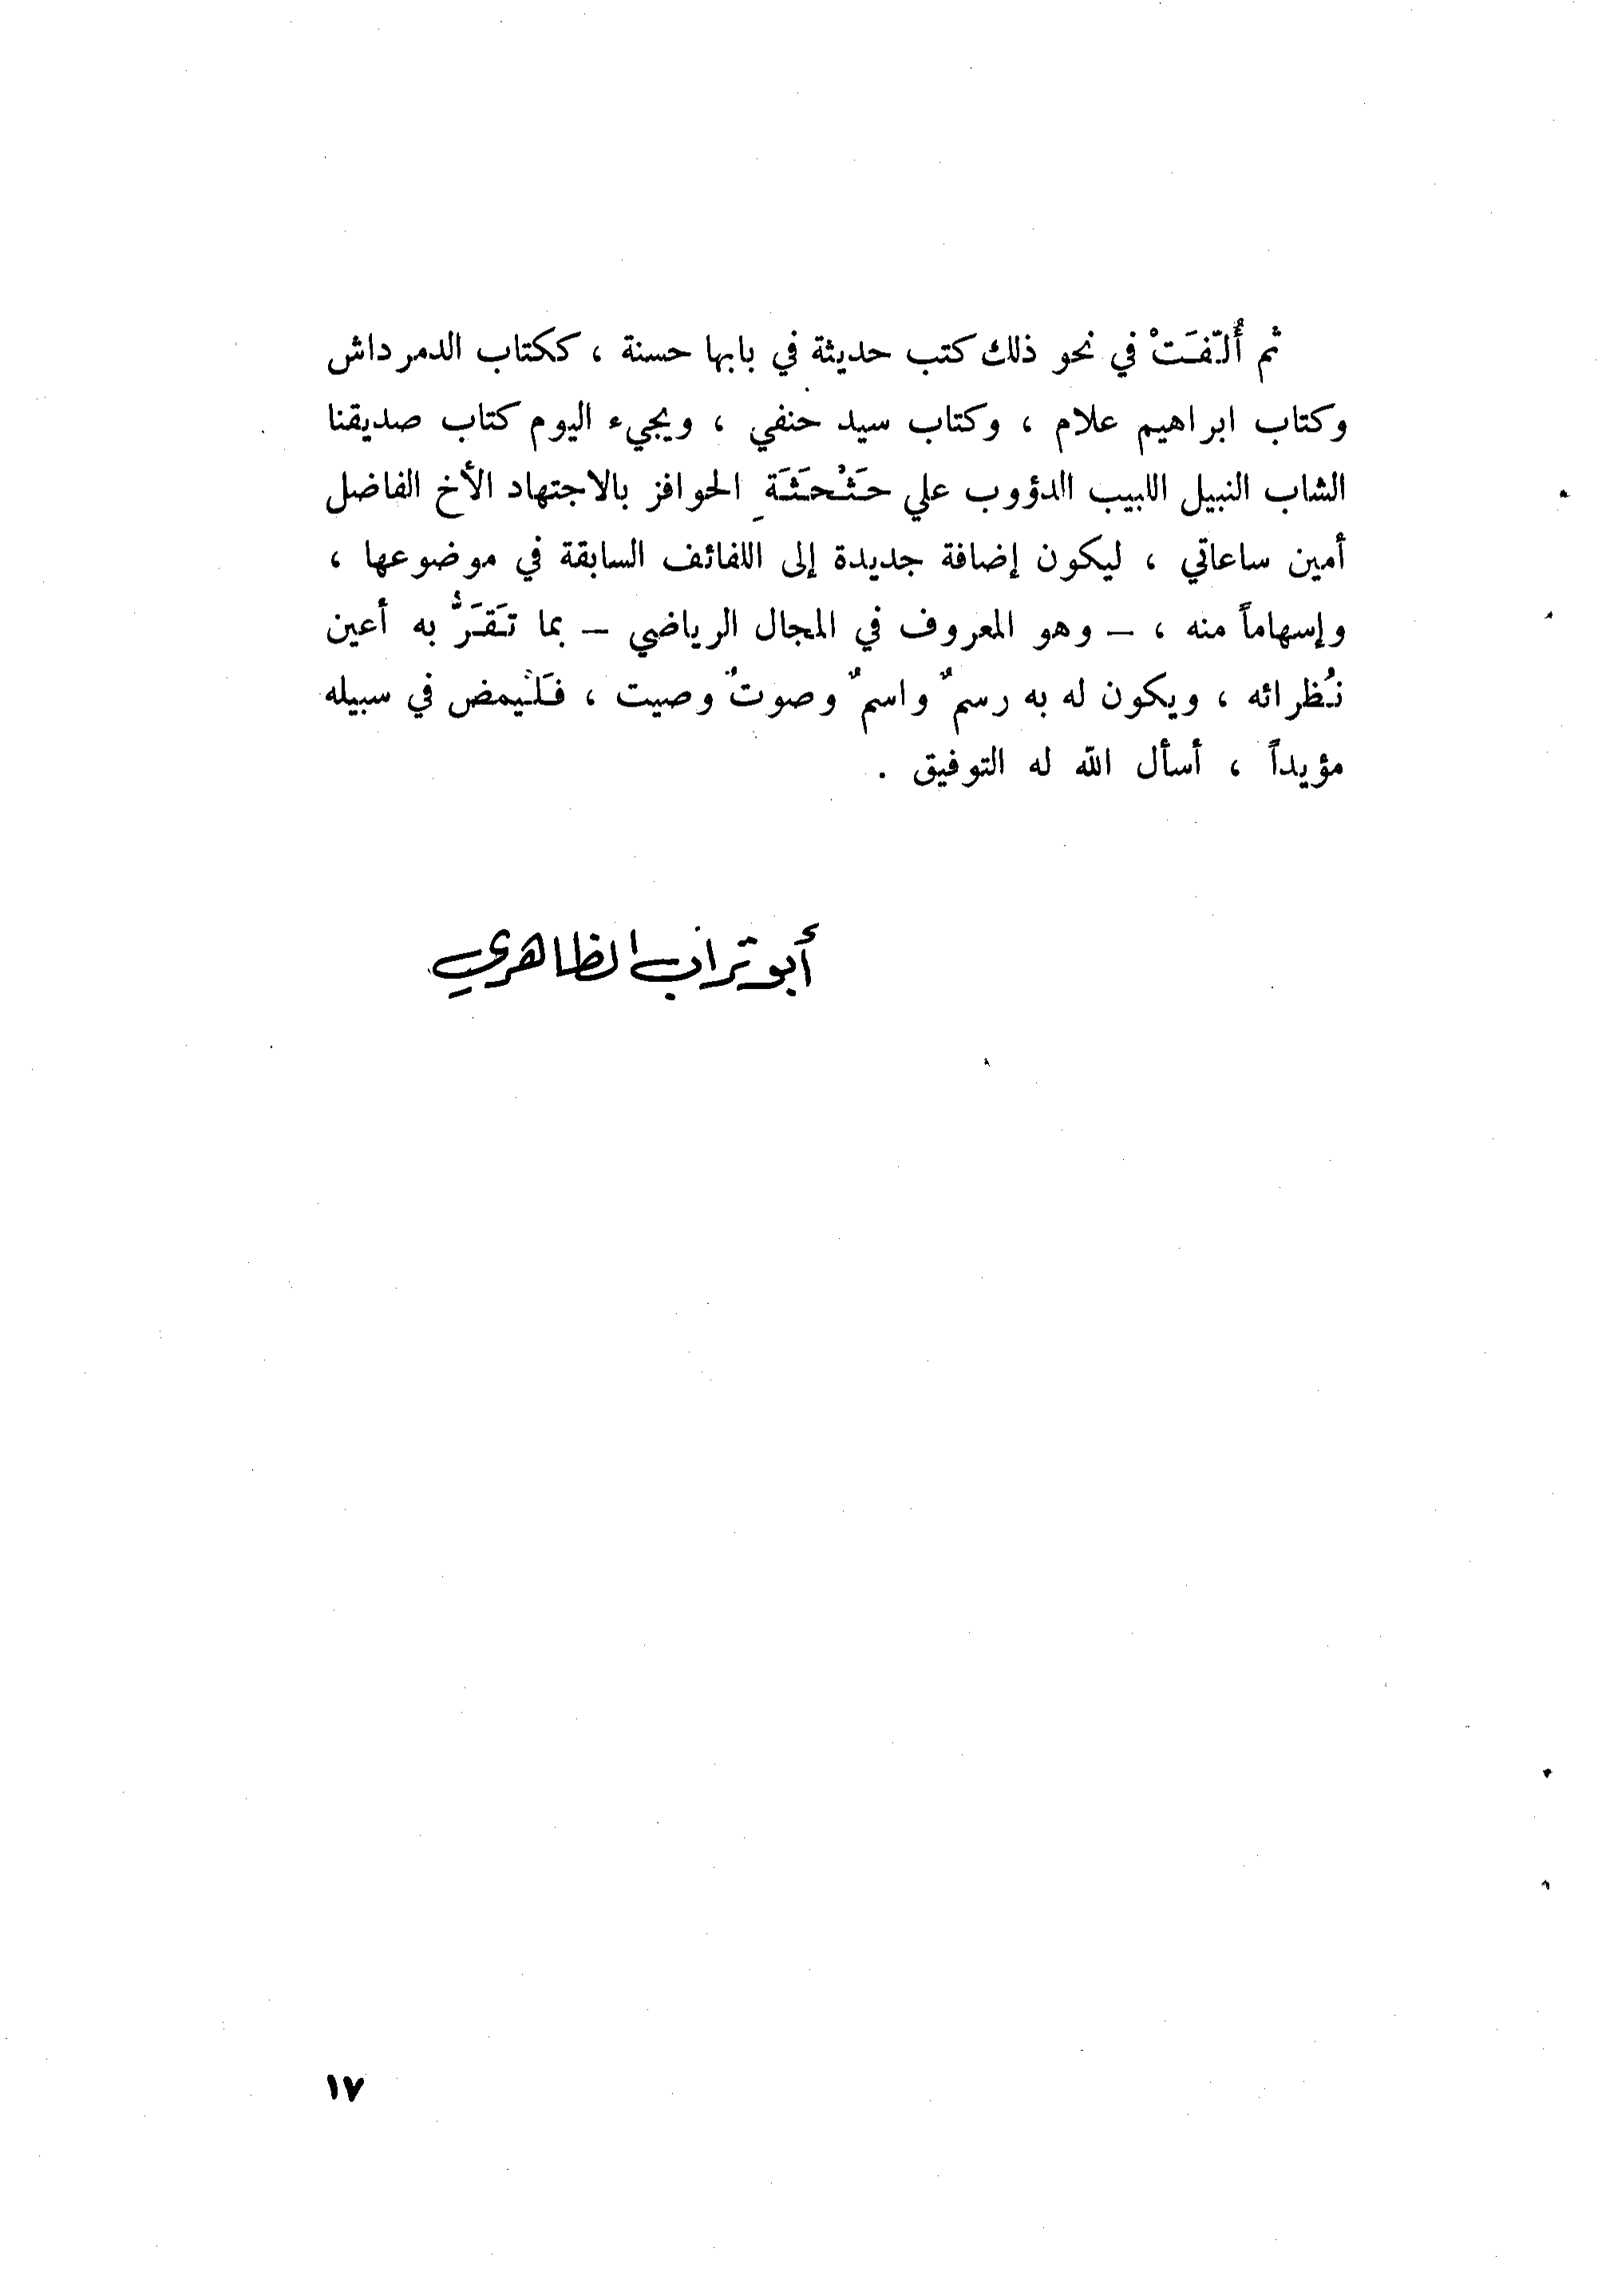 ثم أُلّفَتْ في نحو ذلك كتب حديثة في بابها حسنة ، ككتاب الدمرداش
وكتاب ابراهيم علام ، وكتاب سيد حنفي ، ويجيء اليوم كتاب صديقنا
الشاب النبيل اللبيب الدؤوب علي حَثْحَثَةِ الحوافز بالاجتهاد الأخ الفاضل
أمين ساعاتي ، ليكون إضافة جديدة إلى اللفائف السابقة في موضوعها ،
وإسهاماً منه ، – وهو المعروف في المجال الرياضي – بما تَقَرُّ به أعين
نُظرائه ، ويكون له به رسمٌ واسمٌ وصوتٌ وصيت ، فَلْيمض في سبيله
مؤيداً ، أسأل الله له التوفيق .
أبو تراب الظاهري
١٧